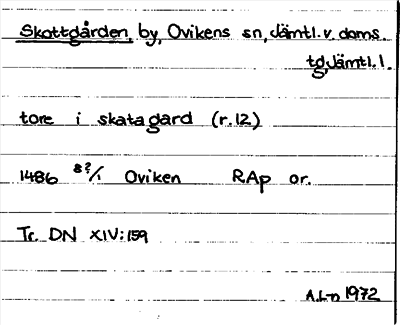 Skottgården, by, Ovikens sn, Jämtl. v. doms.
tg, Jämtl. l.
tore i skatagard (r.12)
1486 8?/1 Oviken RAp or.
Tr. DN XIV:159
A.L-n 1972